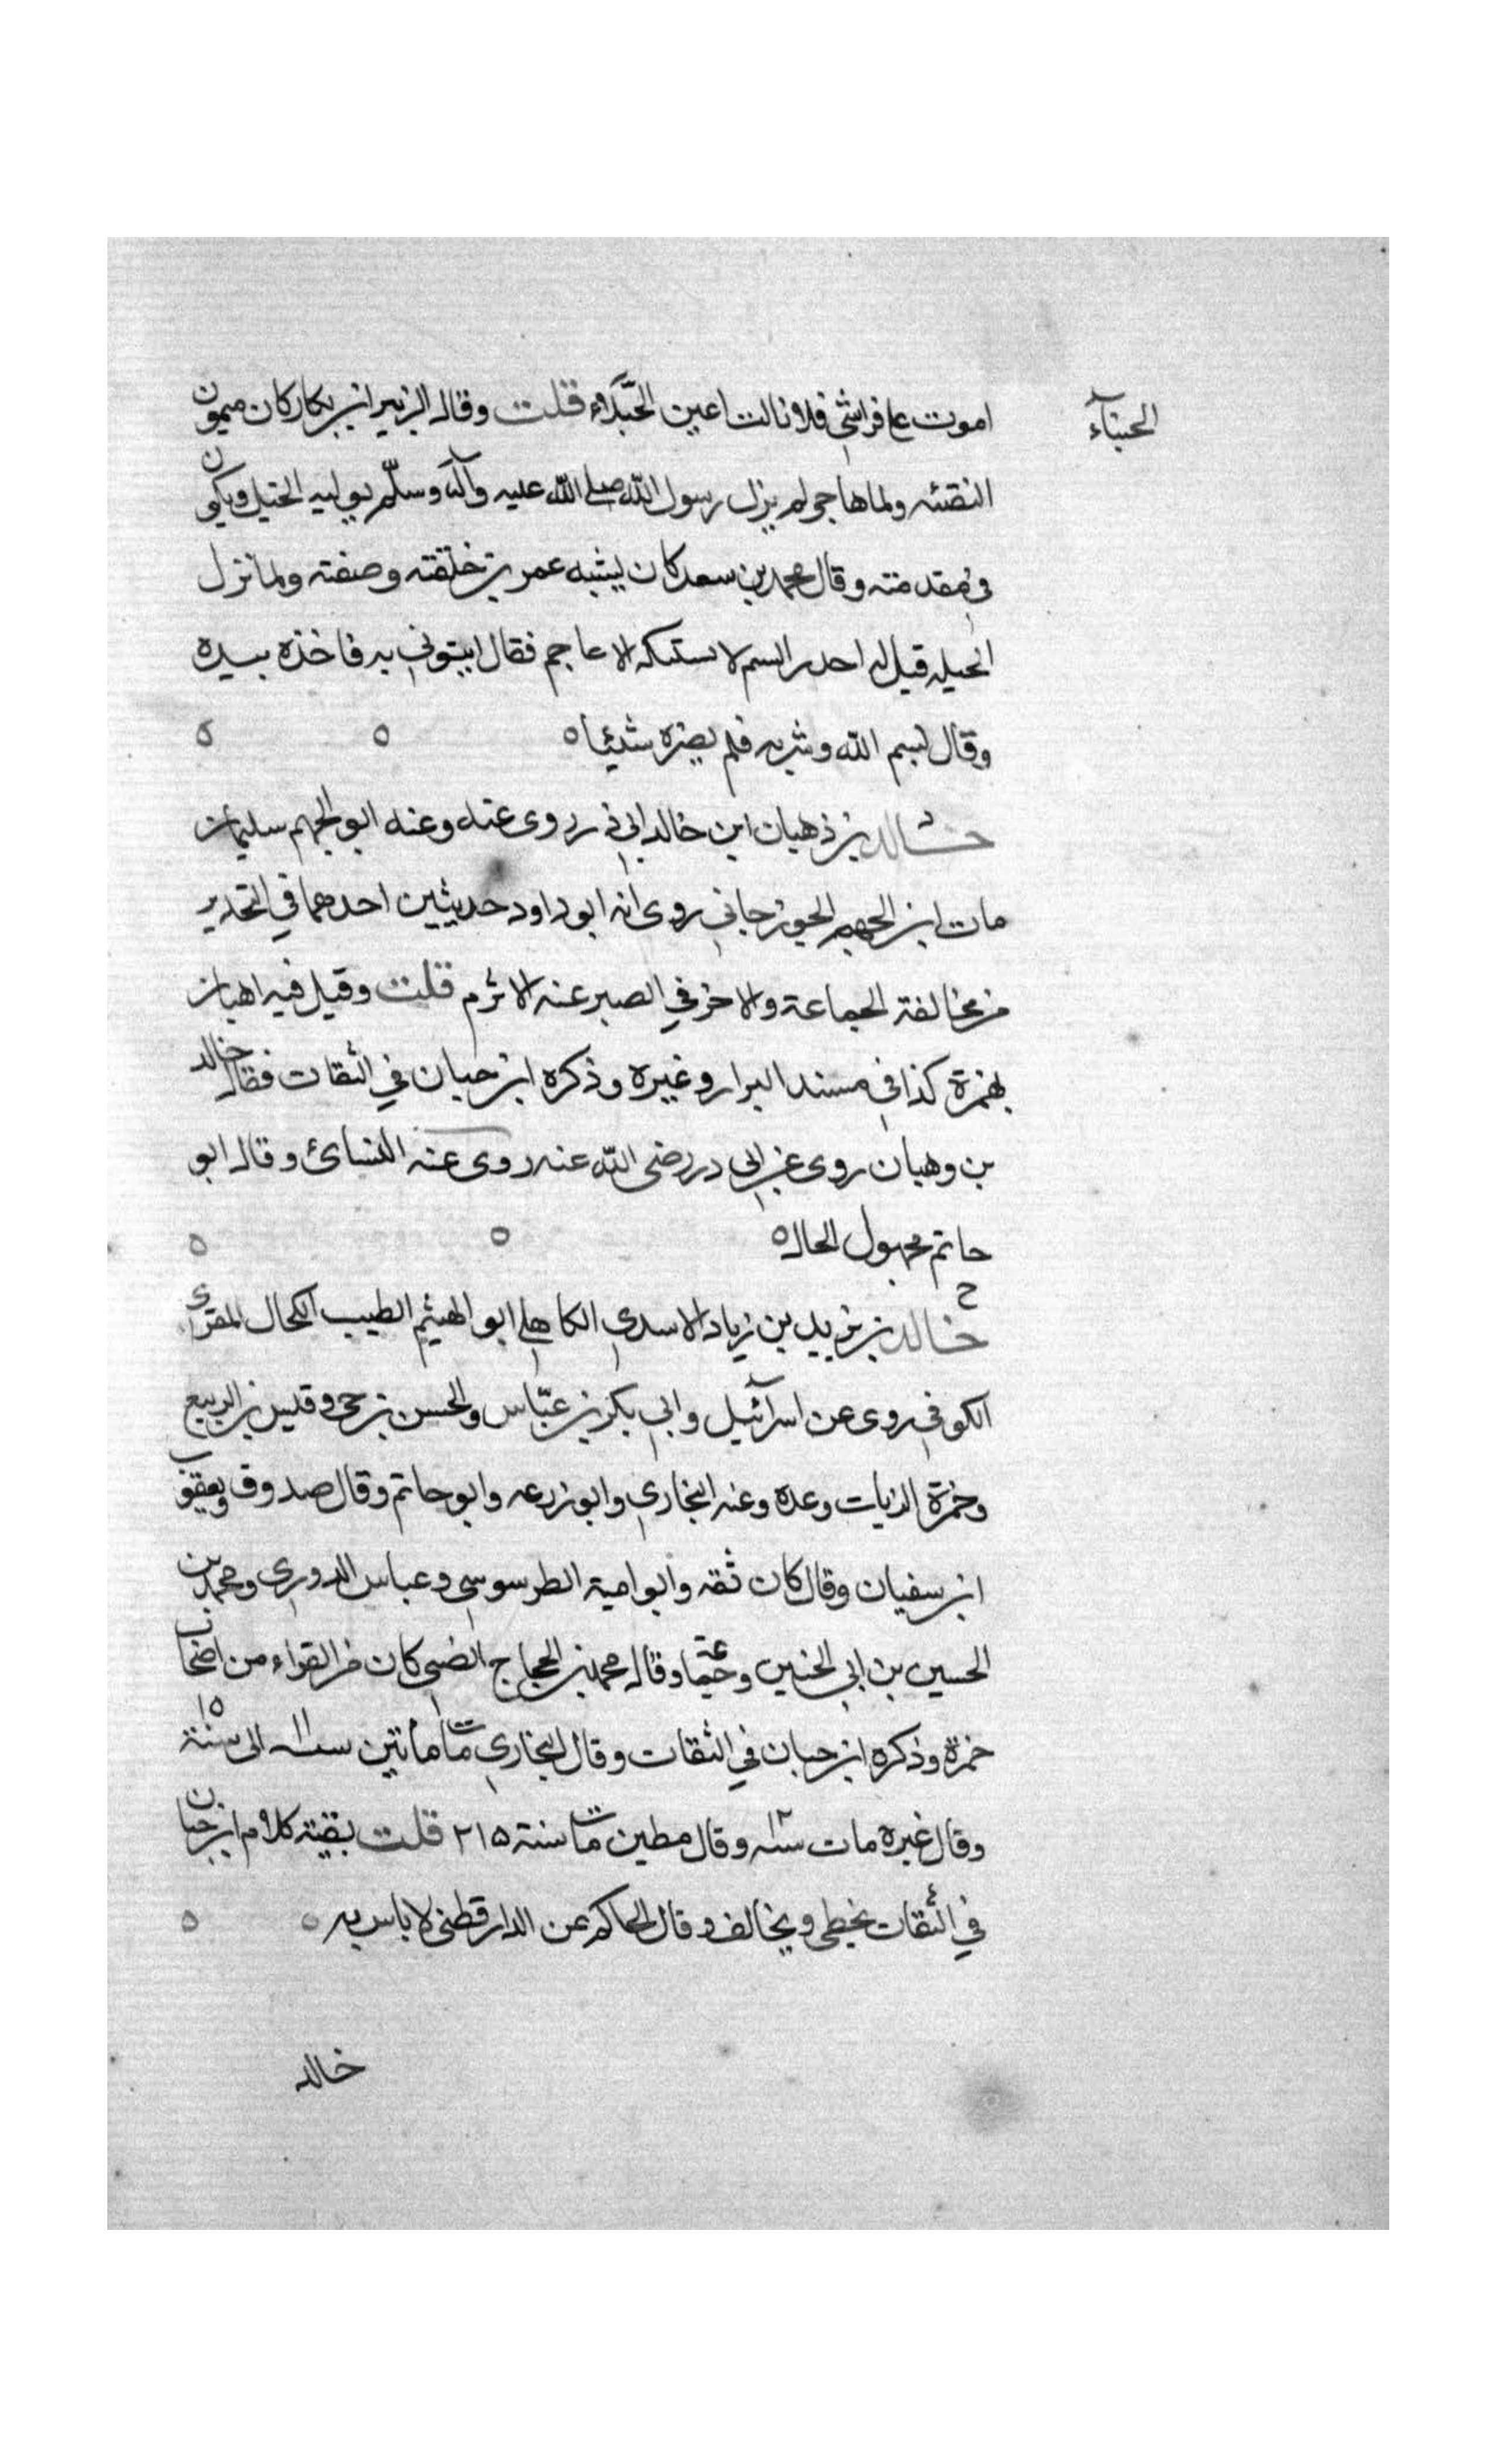 الجبناء
اموت على فراشي فلا نالت اعين الجبناء قلت وقال الزبير ابن بكار كان ميمون
النقيه ولما هاجر لم يزل رسول الله صلى الله عليه وآله وسلم يوليه الخيل ويكون
في مقدمته وقال محمد بن سعد كان يشبه عمر في خلقته وصفته ولما نزل
الحيله قيل له احذر السم لا يسقيكه الاعاجم فقال ايتوني به فاخذه بيده
وقال بسم الله وشربه فلم يضره شيئا ٥ ٥ ٥
خالد بن ذهبان ابن خالد ابي ذر روى عنه وعنه ابو الجهم سليمان
مات ابن الجهم الجوزجاني روى له ابو داود حديثين احدهما في التحذير
من مخالفة الجماعة والاخر في الصبر عند الاثرم قلت وقيل فيه اهبان
بهمزة كذا في مسند البزار وغيره وذكره ابن حبان في الثقات فقال خالد
بن وهبان روى عن ابي در رضي الله عنه روى عنه النسائ وقال ابو
حاتم مجهول الحال ٥ ٥ ٥
خ
خالد بن يزيد بن زياد الاسدي الكاهلي ابو الهيثم الطبيب الكحال المقرى
الكوفي روى عن اسرآئيل وابي بكر بن عباس والحسن بن حي وقيس بن الربيع
وحمزة الزيات وعده وعنه البخاري وابو زرعه وابو حاتم وقال صدوق ويعقوب
ابن سفيان وقال كان ثقه وابو امية الطرسوسي وعباس الدوري ومحمد بن
الحسين بن ابي الحنين وجماعة وقال محمد بن الحجاج الضبي كان من القراء من اصحاب
حمزة وذكره ابن حبان في الثقات وقال البخاري مات مأتين سنة ١١ الى سنة ١٥
وقال غيره مات سنة ١٢ وقال مطين مات سنة ٢١٥ قلت بقية كلام ابن حبان
في الثقات يخطى ويخالف وقال الحاكم عن الدارقطنى لا باس به ٥ ٥
خالد